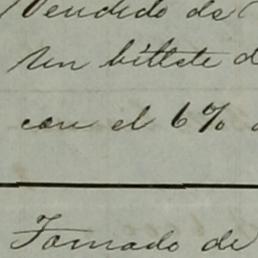 Vendido de
Un billete d
con el 6%
Tomado de